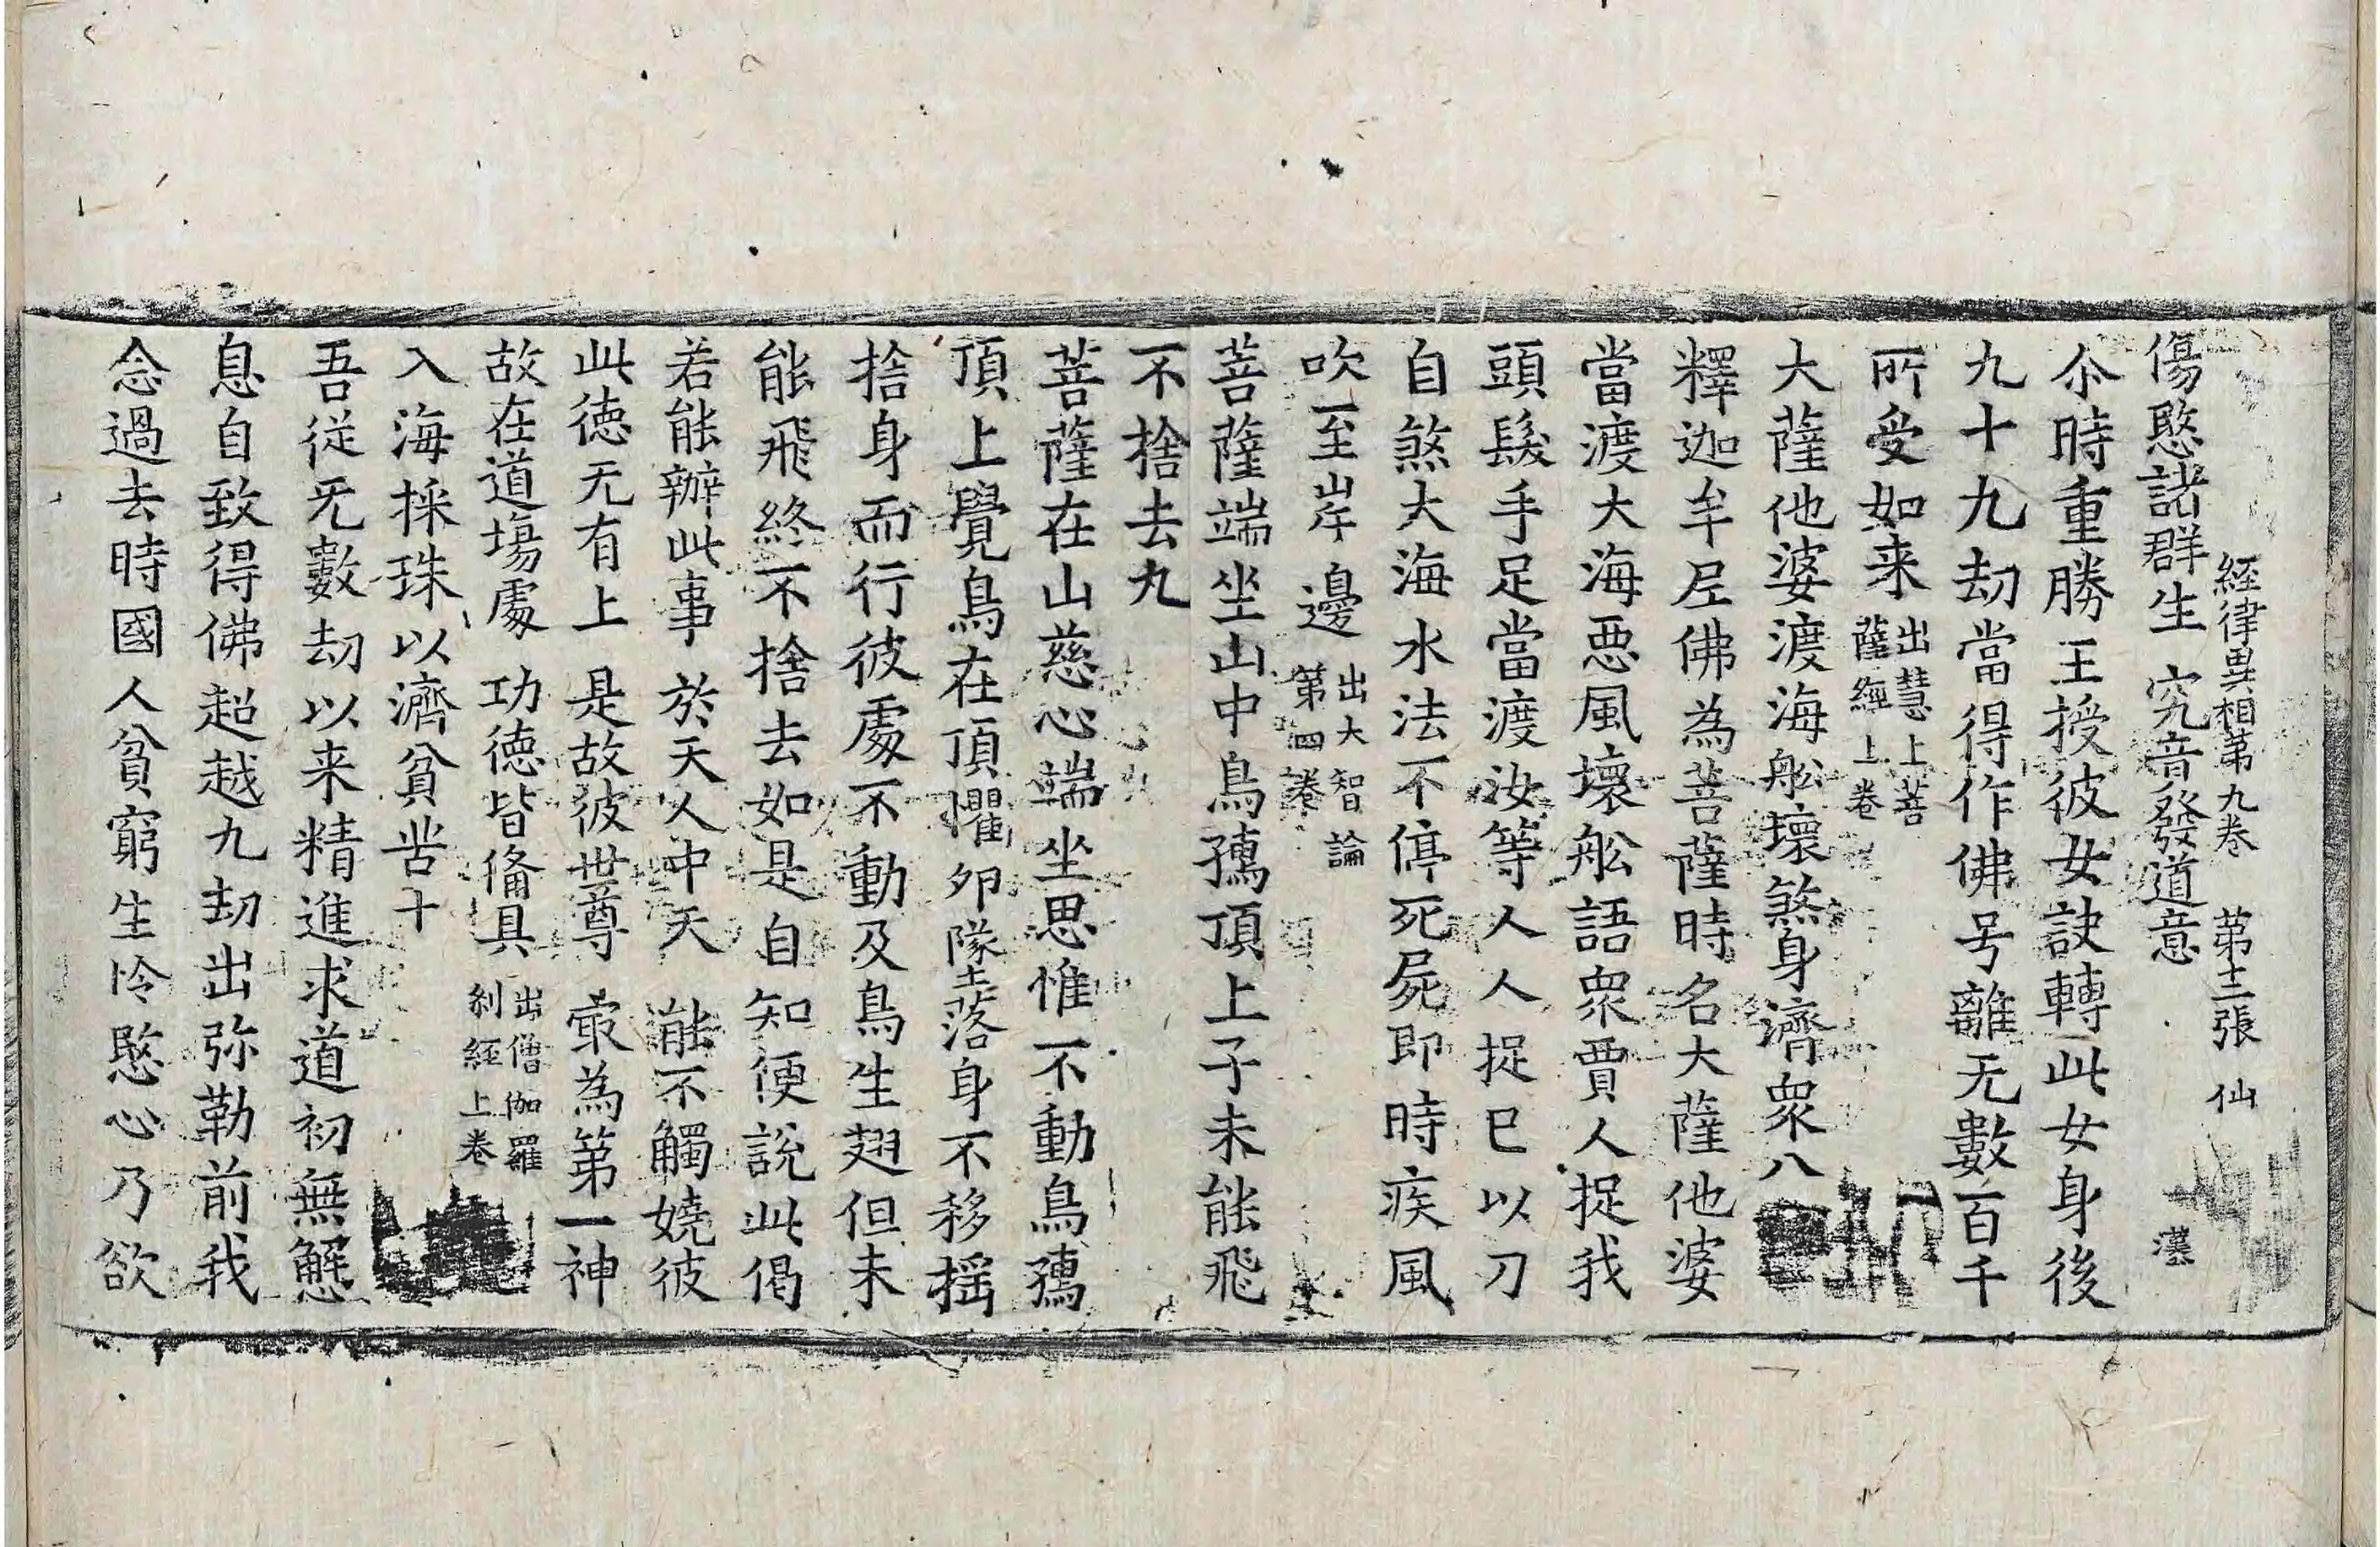 經律異相第九卷 第十二張 仙
傷愍諸群生 究音發道意 漢
尒時重勝王授彼女訣轉此女身後
九十九劫當得作佛号離无數百千
所受如来出慧上菩薩經上卷
大薩他婆渡海舩壞煞身濟衆八
釋迦牟尼佛為菩薩時名大薩他婆
當渡大海惡風壞舩語衆賈人捉我
頭髮手足當渡汝等人人捉已以刀
自煞大海水法不停死屍即時疾風
吹至岸邊出大智論第四卷
菩薩端坐山中鳥孺頂上子未能飛
不捨去九
菩薩在山慈心端坐思惟不動鳥孺
頂上覺鳥在頂懼夘墜落身不移揺
捨身而行彼處不動及鳥生翅但未
能飛終不捨去如是自知便說此偈
若能辦此事 於天人中天 能不觸嬈彼
此徳无有上 是故彼世尊 㝡為第一神
故在道塲處 功徳皆俻具出僧伽羅刹經上卷
入海採珠以濟貧苦十
吾従无數劫以来精進求道初無懈
息自致得佛超越九劫出弥勒前我
念過去時國人貧窮生怜愍心乃欲